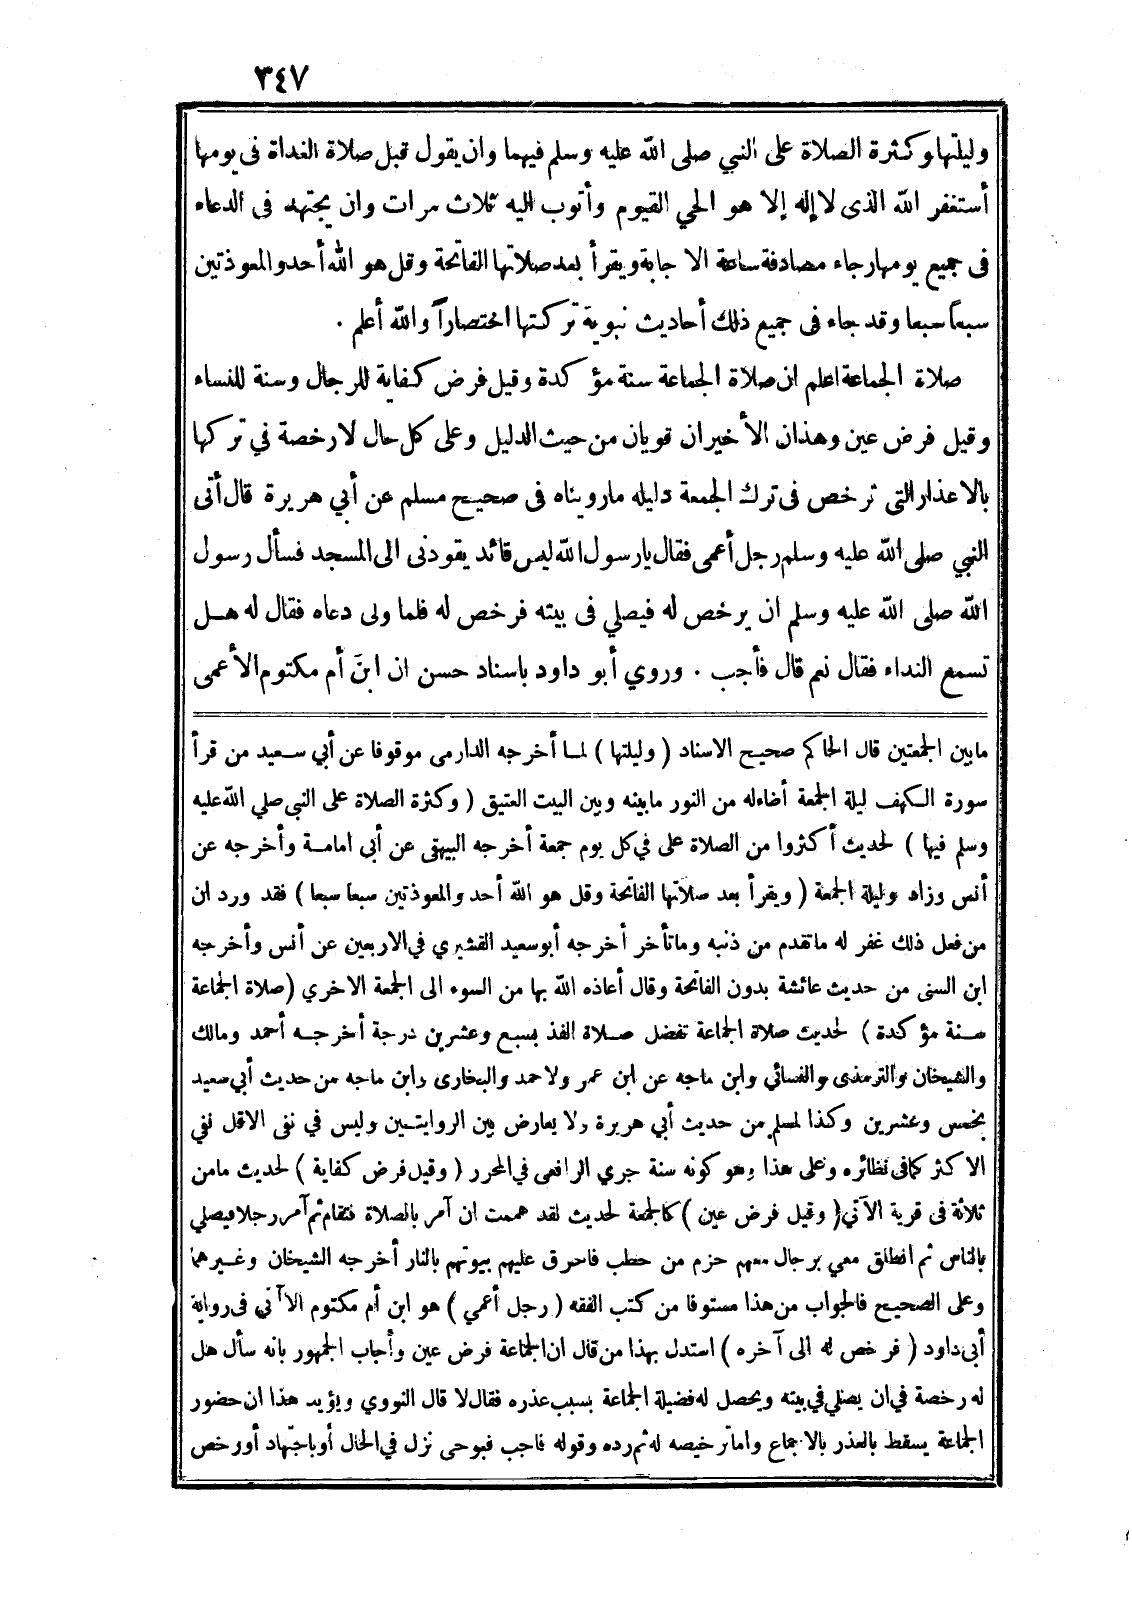 ٣٤٧
وليلتها وكثرة الصلاة على النبي صلى الله عليه وسلم فيهما وان يقول قبل صلاة الغداة فى يومها
أستغفر الله الذى لا إله إلا هو الحي القيوم وأتوب اليه ثلاث مرات وان يجتهد فى الدعاء
فى جميع يومها رجاء مصادفة ساعة الاجابة ويقرأ بعد صلاتها الفاتحة وقل هو الله أحد والمعوذتين
سبعاً سبعا وقد جاء فى جميع ذلك أحاديث نبوية تركتها اختصاراً والله أعلم .
صلاة الجماعة اعلم ان صلاة الجماعة سنة مؤكدة وقيل فرض كفاية للرجال وسنة للنساء
وقيل فرض عين وهذان الأخيران قويان من حيث الدليل وعلى كل حال لا رخصة في تركها
بالاعذار التى ترخص فى ترك الجمعة دليله ما رويناه فى صحيح مسلم عن أبي هريرة قال أتى
النبي صلى الله عليه وسلم رجل أعمى فقال يا رسول الله ليس قائد يقودنى الى المسجد فسأل رسول
الله صلى الله عليه وسلم ان يرخص له فيصلي فى بيته فرخص له فلما ولى دعاه فقال له هل
تسمع النداء فقال نعم قال فأجب . وروي أبو داود باسناد حسن ان ابنَ أم مكتوم الأعمى
مابين الجمعتين قال الحاكم صحيح الاسناد ( وليلتها ) لما أخرجه الدارمى موقوفا عن أبي سعيد من قرأ
سورة الكهف ليلة الجمعة أضاء له من النور ما بينه وبين البيت العتيق ( وكثرة الصلاة على النبي صلي الله عليه
وسلم فيها ) لحديث أكثروا من الصلاة على في كل يوم جمعة أخرجه البيهقى عن أبى امامة وأخرجه عن
أنس وزاد وليلة الجمعة ( ويقرأ بعد صلاتها الفاتحة وقل هو الله أحد والمعوذتين سبعا سبعا ) فقد ورد ان
من فعل ذلك غفر له ما تقدم من ذنبه وما تأخر أخرجه أبو سعيد القشيري في الاربعين عن أنس وأخرجه
ابن السنى من حديث عائشة بدون الفاتحة وقال أعاذه الله بها من السوء الى الجمعة الاخري ( صلاة الجماعة
سنة مؤكدة ) لحديث صلاة الجماعة تفضل صلاة الفذ بسبع وعشرين درجة أخرجه أحمد ومالك
والشيخان والترمذى والنسائي وابن ماجه عن ابن عمر ولاحمد والبخارى وابن ماجه من حديث أبي سعيد
بخمس وعشرين وكذا لمسلم من حديث أبي هريرة ولا يعارض بين الروايتين وليس في نفى الاقل نفي
الاكثر كما فى نظائره وعلى هذا وهو كونه سنة جري الرافعى في المحرر ( وقيل فرض كفاية ) لحديث ما من
ثلاثة فى قرية الآتي ( وقيل فرض عين ) كالجمعة لحديث لقد هممت ان آمر بالصلاة فتقام ثم آمر رجلا فيصلي
بالناس ثم انطلق معي برجال معهم حزم من حطب فاحرق عليهم بيوتهم بالنار أخرجه الشيخان وغيرهما
وعلى الصحيح فالجواب من هذا مستوفا من كتب الفقه ( رجل أعمي ) هو ابن أم مكتوم الآتي فى رواية
أبى داود ( فرخص له الى آخره ) استدل بهذا من قال ان الجماعة فرض عين وأجاب الجمهور بانه سأل هل
له رخصة في ان يصلي في بيته ويحصل له فضيلة الجماعة بسبب عذره فقال لا قال النووي ويؤيد هذا ان حضور
الجماعة يسقط بالعذر بالاجماع واما ترخيصه له ثم رده وقوله فاجب فبوحى نزل في الحال أو باجتهاد أو رخص